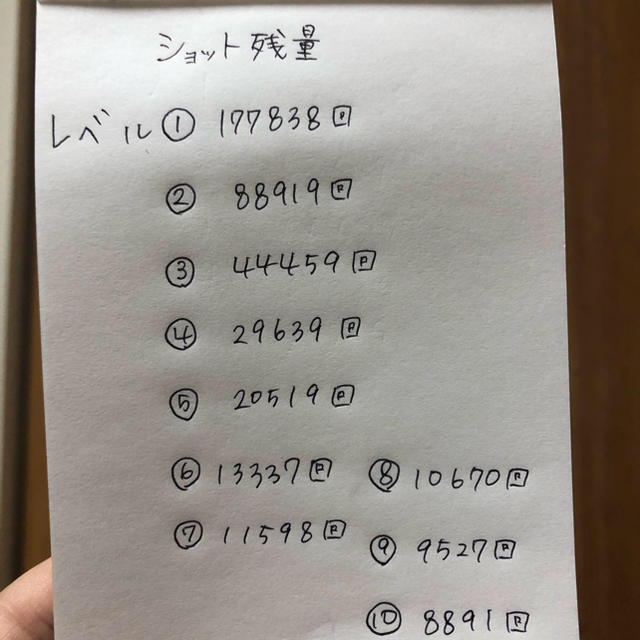 ショット残量
レベル① 177838回
② 88919回
③ 44459回
④ 29639回
⑤ 20519回
⑥ 13337回
⑦ 11598回
⑧ 10670回
⑨ 9527回
⑩ 8891回